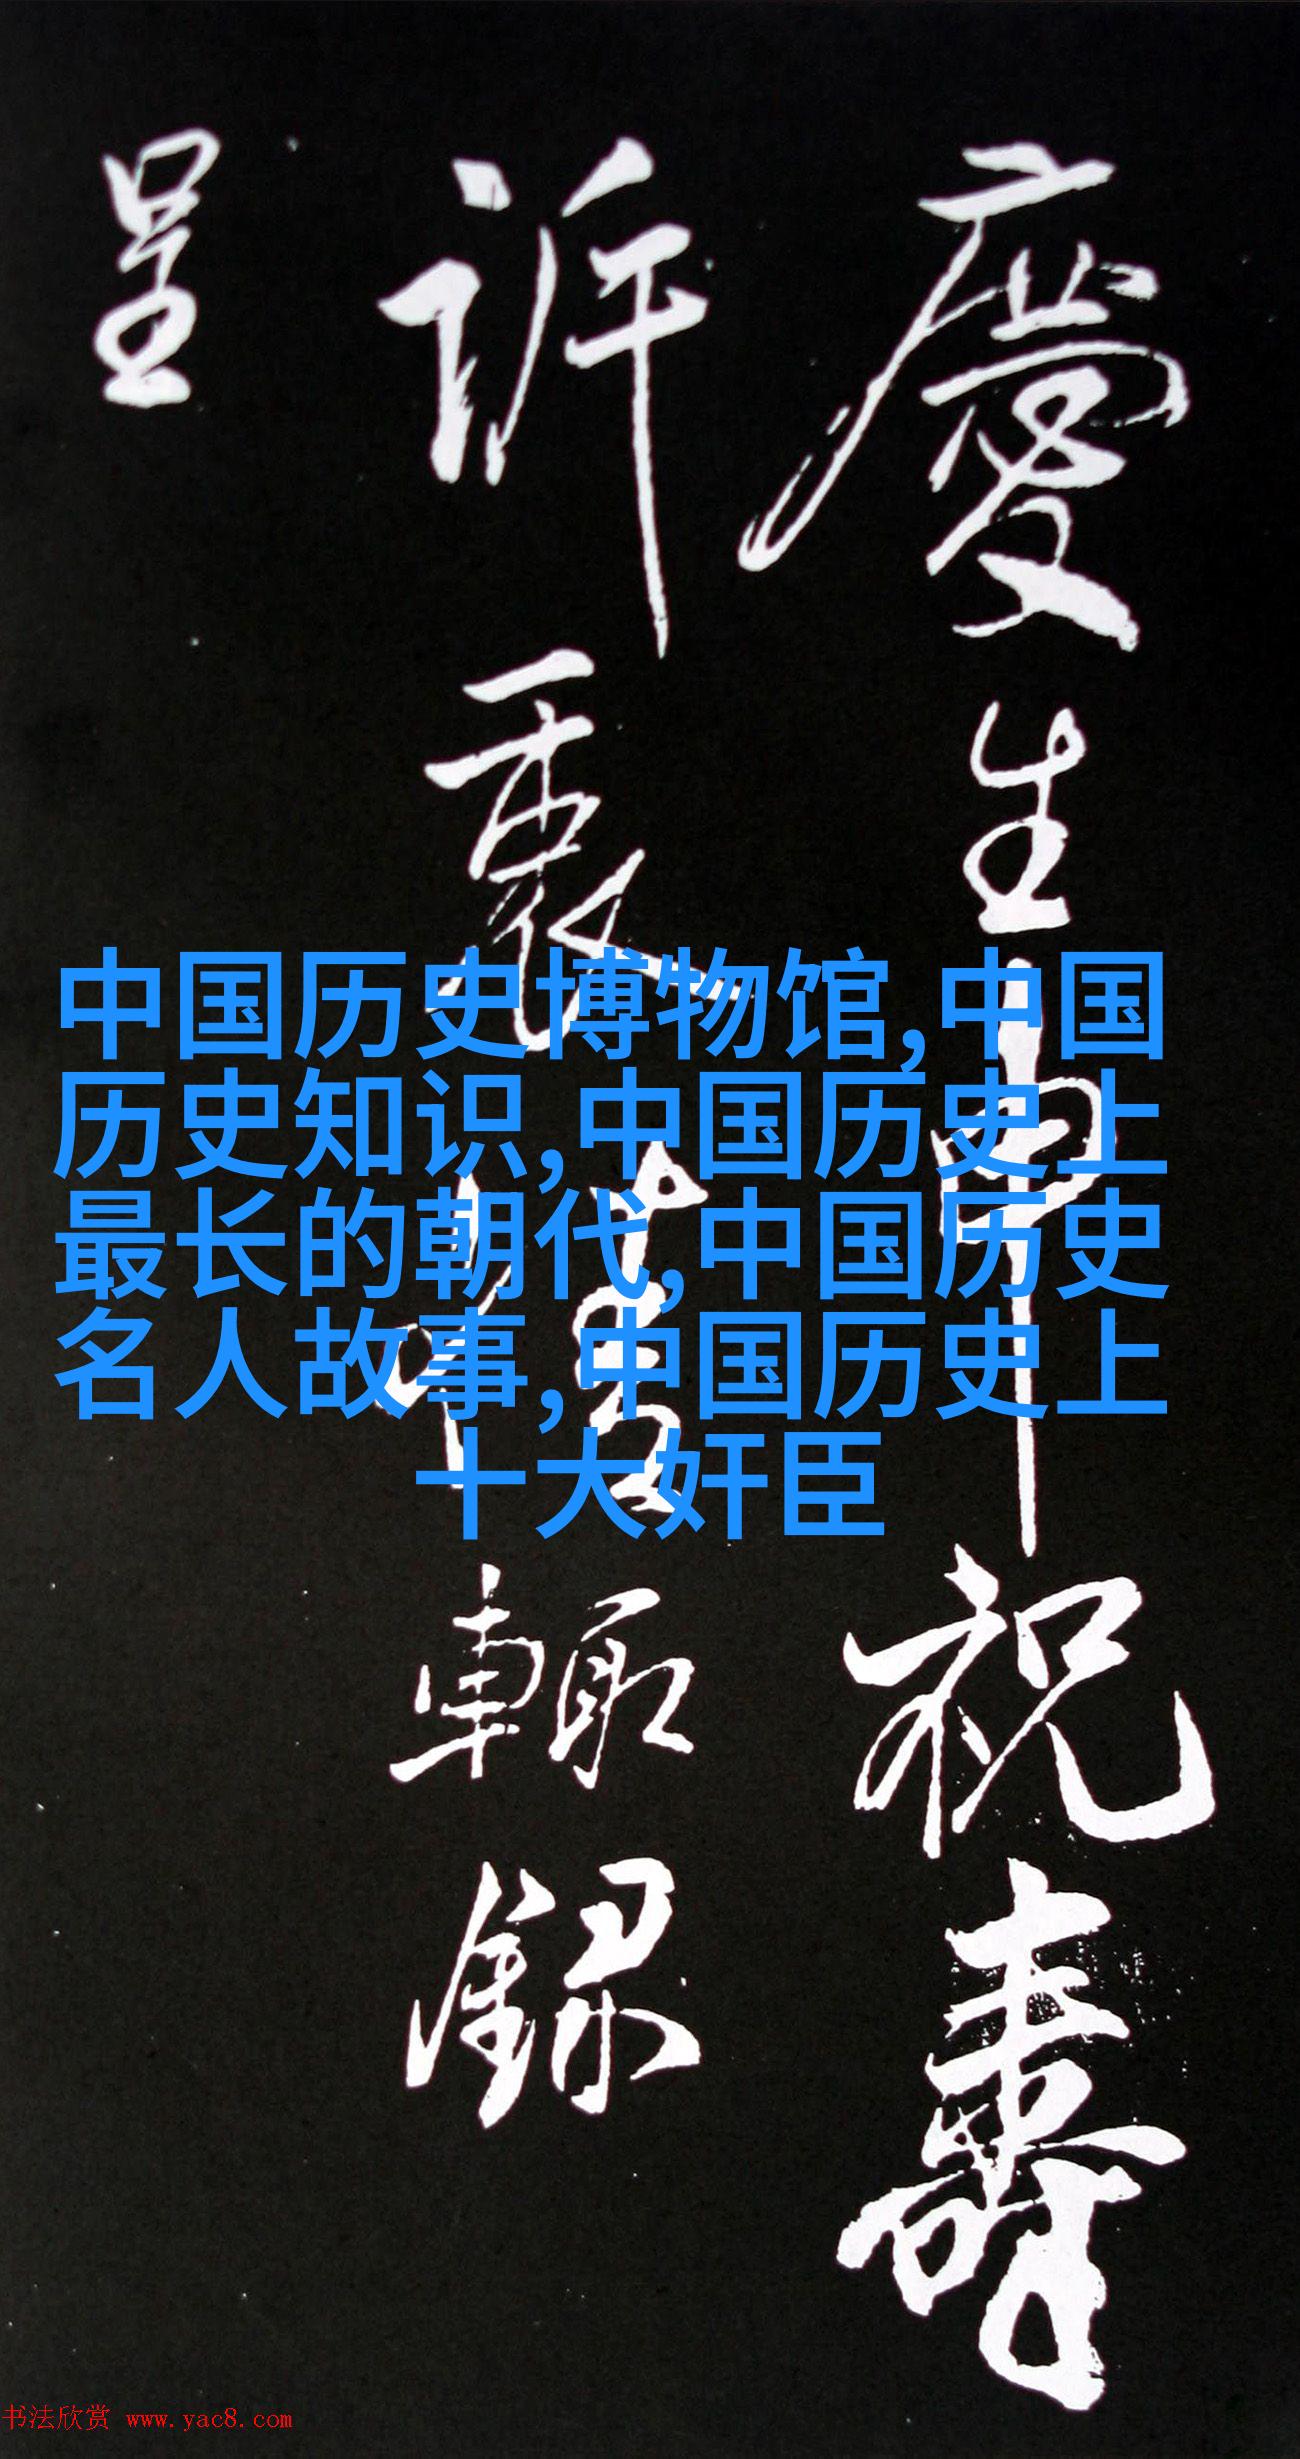 慶生申祝壽
訢衷情輒録
呈
中国历史博物馆,中国
历史知识,中国历史上
最长的朝代,中国历史
名人故事,中国历史上
十大奸臣
书法欣赏 www.yac8.com